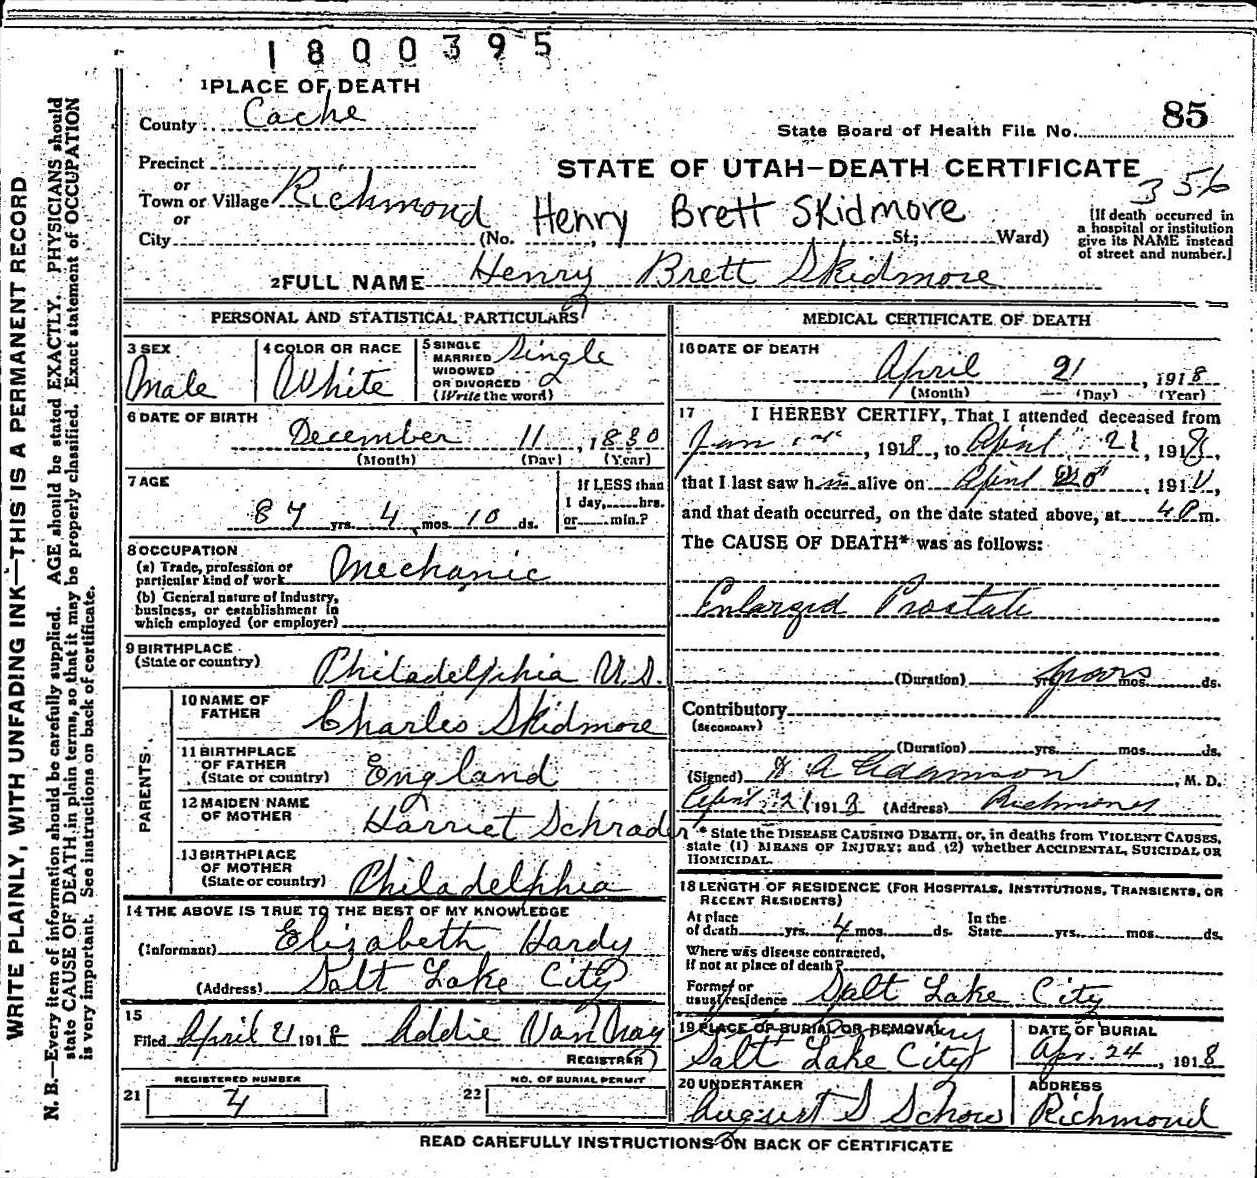 1800395
1 PLACE OF DEATH
County Cache
85
State Board of Health File No.
Precinct
STATE OF UTAH—DEATH CERTIFICATE
356
or
Town or Village Richmond
Henry Brett Skidmore
or
City (No. St.; Ward)
[If death occurred in
a hospital or institution
give its NAME instead
of street and number.]
2 FULL NAME Henry Brett Skidmore
PERSONAL AND STATISTICAL PARTICULARS
3 SEX
Male
4 COLOR OR RACE
White
5 SINGLE
MARRIED
WIDOWED
OR DIVORCED
(Write the word)
Single
6 DATE OF BIRTH
December 11, 1830
(Month) (Day) (Year)
7 AGE
87 yrs. 4 mos. 10 ds.
If LESS than
1 day, hrs.
or min.?
8 OCCUPATION
(a) Trade, profession or
particular kind of work Mechanic
(b) General nature of Industry,
business, or establishment in
which employed (or employer)
9 BIRTHPLACE
(State or country) Philadelphia U.S.
PARENTS
10 NAME OF
FATHER Charles Skidmore
11 BIRTHPLACE
OF FATHER
(State or country) England
12 MAIDEN NAME
OF MOTHER Harriet Schrader
13 BIRTHPLACE
OF MOTHER
(State or country) Philadelphia
14 THE ABOVE IS TRUE TO THE BEST OF MY KNOWLEDGE
(Informant) Elizabeth Hardy
(Address) Salt Lake City
15
Filed April 21 1918 Addie Van
REGISTRAR
REGISTERED NUMBER
21 4
NO. OF BURIAL PERMIT
22
MEDICAL CERTIFICATE OF DEATH
16 DATE OF DEATH
April 21, 1918
(Month) (Day) (Year)
17 I HEREBY CERTIFY, That I attended deceased from
Jan, 1918, to April 21, 1918,
that I last saw him alive on April 20, 191
and that death occurred, on the date stated above, at 4 P m.
The CAUSE OF DEATH* was as follows:
Enlarged Prostate
(Duration) yrs. years mos. ds.
Contributory
(SECONDARY)
(Duration) yrs. mos. ds.
(Signed) A Adamson, M. D.
April 21 1918 (Address) Richmond
* State the DISEASE CAUSING DEATH, or, in deaths from VIOLENT CAUSES,
state (1) MEANS OF INJURY; and (2) whether ACCIDENTAL, SUICIDAL OR
HOMICIDAL.
18 LENGTH OF RESIDENCE (FOR HOSPITALS, INSTITUTIONS, TRANSIENTS, OR
RECENT RESIDENTS)
At place
of death yrs. 4 mos. ds.
In the
State yrs. mos. ds.
Where was disease contracted,
If not at place of death?
Former or
usual residence Salt Lake City
19 PLACE OF BURIAL OR REMOVAL
Salt Lake City
DATE OF BURIAL
Apr. 24, 1918
20 UNDERTAKER
August S Schow
ADDRESS
Richmond
READ CAREFULLY INSTRUCTIONS ON BACK OF CERTIFICATE
WRITE PLAINLY, WITH UNFADING INK—THIS IS A PERMANENT RECORD
N. B.—Every item of information should be carefully supplied. AGE should be stated EXACTLY. PHYSICIANS should
state CAUSE OF DEATH in plain terms, so that it may be properly classified. Exact statement of OCCUPATION
is very important. See instructions on back of certificate.